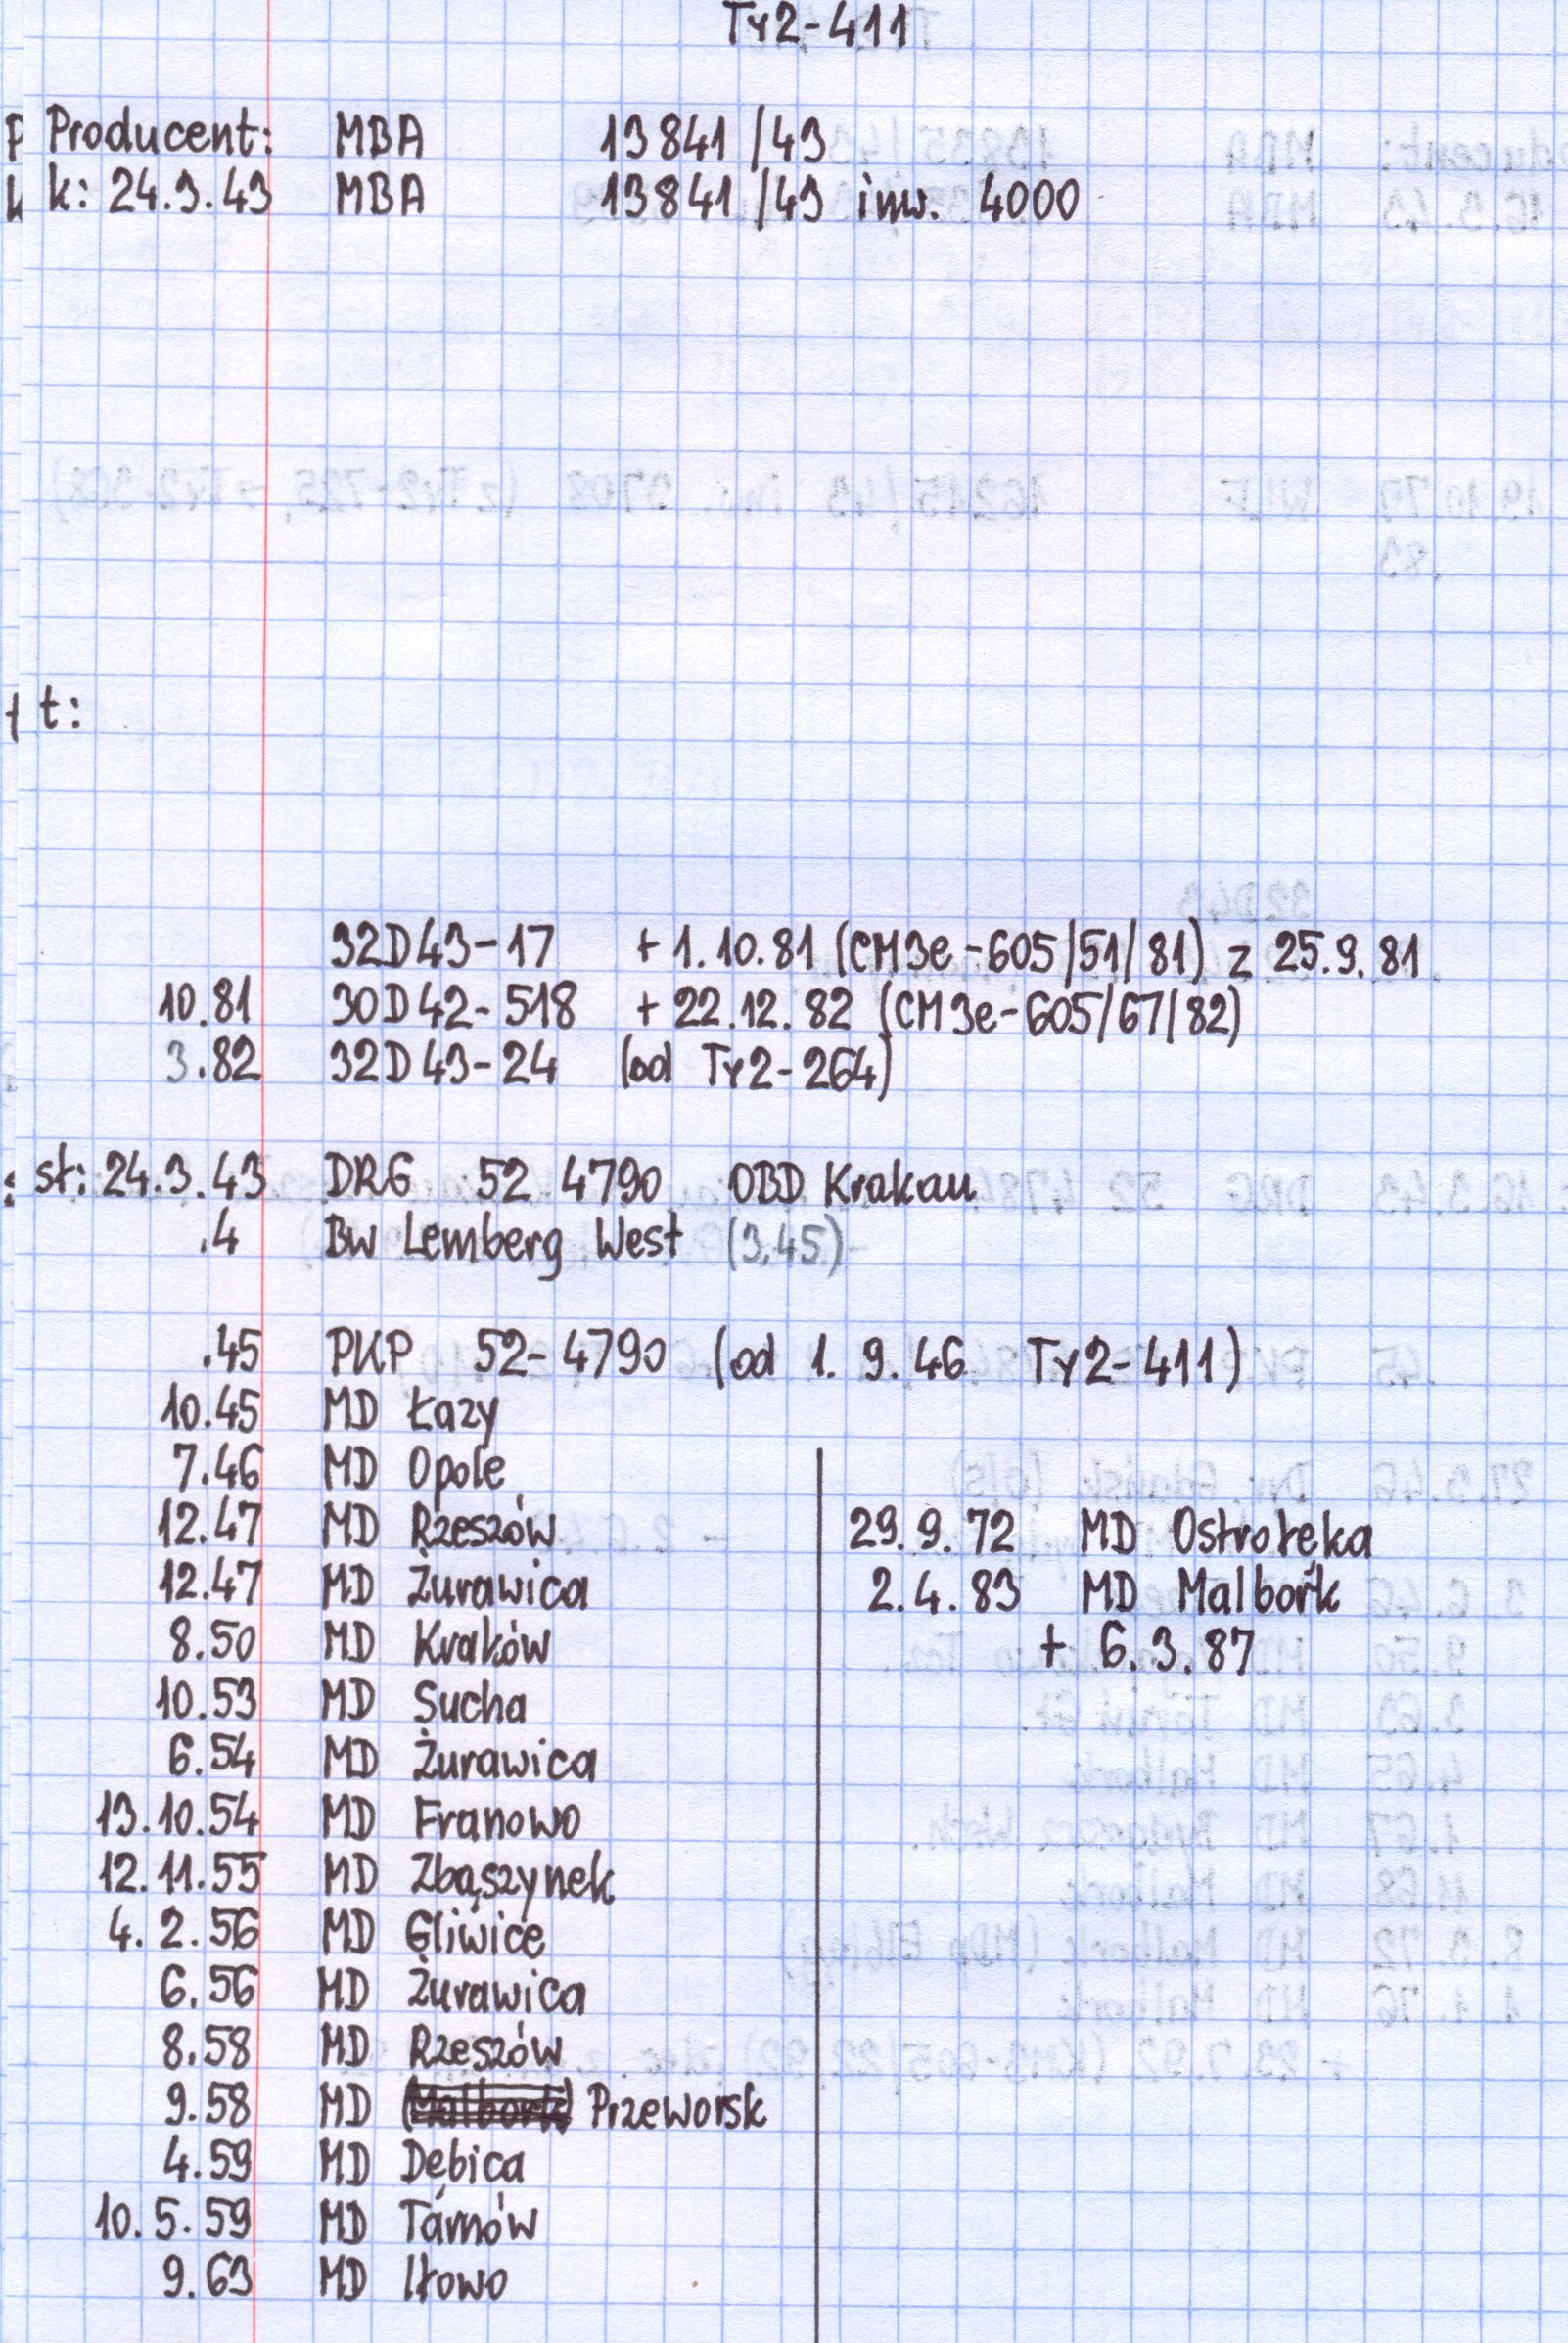 Ty2-411
Producent: MBA 13841/43
k: 24.3.43 MBA 13841/43 inw. 4000
t:
32D43-17 + 1.10.81 (CM3e-605/51/81) z 25.9.81
10.81 30D42-518 + 22.12.82 (CM3e-605/67/82)
3.82 32D43-24 (od Ty2-264)
st: 24.3.43 DRG 52 4790 OBD Krakau
.4 Bw Lemberg West (3.45)
.45 PKP 52-4790 (od 1. 9.46 Ty2-411)
10.45 MD Łazy
7.46 MD Opole
12.47 MD Rzeszów
12.47 MD Żurawica
8.50 MD Kraków
10.53 MD Sucha
6.54 MD Żurawica
13.10.54 MD Franowo
12.11.55 MD Zbąszynek
4.2.56 MD Gliwice
6.56 MD Żurawica
8.58 MD Rzeszów
9.58 MD (Malbork) Przeworsk
4.59 MD Dębica
10.5.59 MD Tarnów
9.63 MD Iłowo
29.9.72 MD Ostrołęka
2.4.83 MD Malbork
+ 6.3.87